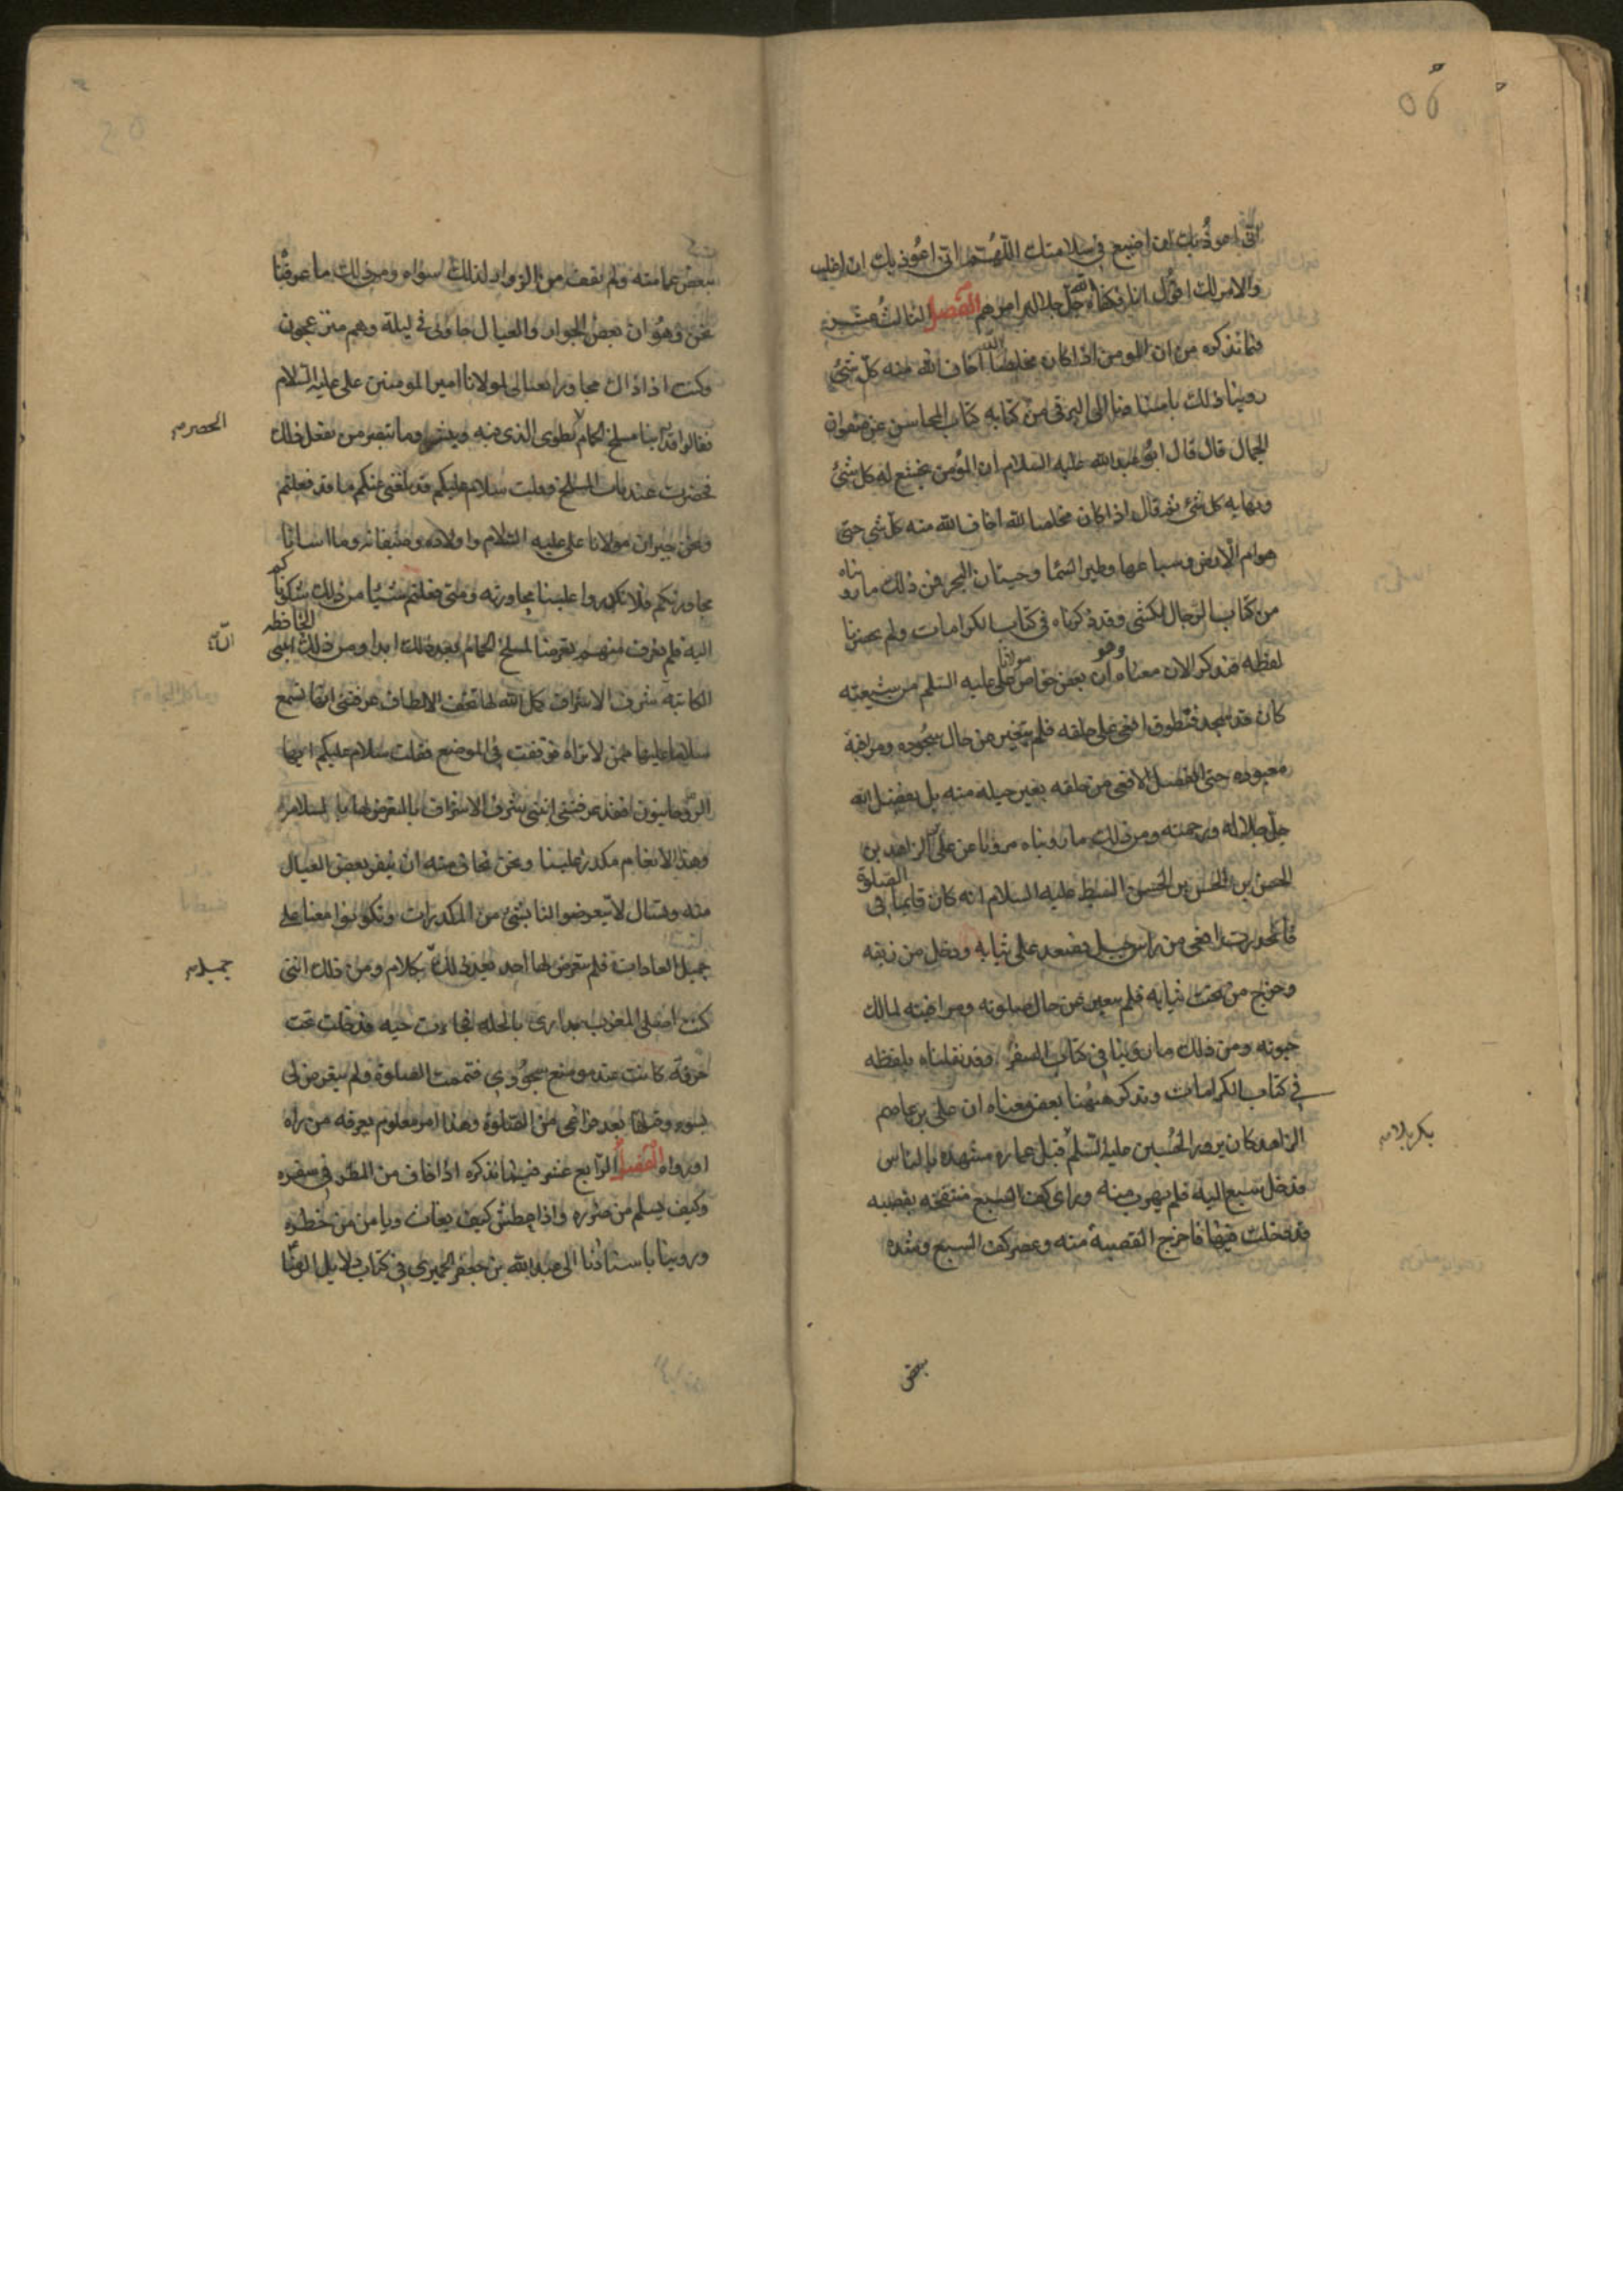 اني اعوذ بك ان اضيع في سلامتك اللهم اني اعوذ بك ان اغلب
والامر لك اقول انا فكفاه الله جل جلاله امرهم الفصل الثالث عشر
فيما نذكره من ان المومن اذا كان مخلصا لله اخاف الله منه كل شيء
روينا ذلك باسنادنا الى البرقي من كتابه كتاب المحاسن عن صفوان
الجمال قال قال ابو عبد الله عليه السلام ان المؤمن يخشع له كل شيء
ويهابه كل شيء ثم قال اذا كان مخلصا لله اخاف الله منه كل شي حتى
هوام الارض وسباعها وطير السما وحيتان البحر فمن ذلك ما رويناه
من كتاب الرجال للكشي وقد ذكرناه في كتاب الكرامات ولم يحضرنا
لفظه فنذكر الان معناه وهو ان بعض خواص مولانا علي عليه السلم من شيعته
كان قد سجد فتطوق افعى على حلقه فلم يتغير من حال سجوده ومراقبة
معبوده حتى انفصل الافعى من حلقه بغير حيلة منه بل بفضل الله
جل جلاله ورحمته ومن ذلك ما رويناه مرويا عن علي الزاهد بن
الحسن بن الحسن بن الحسن السبط عليه السلام انه كان قايما في الصلوة
فانحدرت افعى من راس جبل فصعد على ثيابه ودخل من زيقه
وخرج من تحت ثيابه فلم يتغير عن حال صلوته ومراقبته لمالك
حيوته ومن ذلك ما روينا في كتاب السفر وقد نقلناه بلفظه
في كتاب الكرامات ونذكر ههنا بعض معناه ان علي بن عاصم
الزاهد كان يزور الحسين عليه السلم قبل عمارة مشهده بالناس
بكربلا
فدخل سبع اليه فلم يهرب منه وراى كف السبع منتفخه بقصبه
قد دخلت فيها فاخرج القصبة منه وعصر كف السبع وشده
بعض
ببعض عمامته ولم يقف من الزوار لذلك سواه ومن ذلك ما عرفنا
نحن وهو ان بعض الجوار والعيال جاؤني في ليلة وهم منزعجون
وكنت اذ ذاك مجاورا بعيالي لمولانا امير المومنين علي عليه السلام
فقالوا قد راينا مسلخ الحمام تطوى الذي فيه وينشر وما نبصر من يفعل ذلك
الحصر
فحضرت عند باب المسلخ وقلت سلام عليكم قد بلغني عنكم ما قد فعلتم
ونحن جيران مولانا علي عليه السلام واولاده وضيفانه وما اسانا
مجاورتكم فلا تكدروا علينا مجاورته ومتى فعلتم شيئا من ذلك شكوناكم
اليه فلم نعرف منهم تعرضا لمسلخ الحمام بعد ذلك ابدا ومن ذلك ابنتي الحافظه
الكاتبه شرف الاشراف كمل الله لها تحف الالطاف عرفتني انها تسمع
سلاما عليها ممن لا تراه فوقفت في الموضع فقلت سلام عليكم ايها
الروحانيون فقد عرفتني ابنتي شرف الاشراف بالتعرض لها بالسلام
وهذا الانعام مكدر علينا ونحن نخاف منه ان ينفر بعض العيال
منه ونسال لا تتعرضوا لنا بشيء من المكدرات وتكونوا معنا على
جميل العادات فلم يتعرض لها احد بعد ذلك بكلام ومن ذلك انني
جميل
كنت اصلي المغرب بداري بالحله فجاءت حيه فدخلت تحت
خرقة كانت عند موضع سجودي فتممت الصلوة ولم تتعرض لي
بسوء وقتلتها بعد فراغي من الصلوة وهذا امر معلوم يعرفه من راه
او رواه الفصل الرابع عشر فيما نذكره اذا خاف من المطر في سفره
وكيف يسلم من ضرره واذا عطش كيف يغاث ويامن من خطره
وروينا باسنادنا الى عبد الله بن جعفر الحميري في كتاب دلايل الرضا